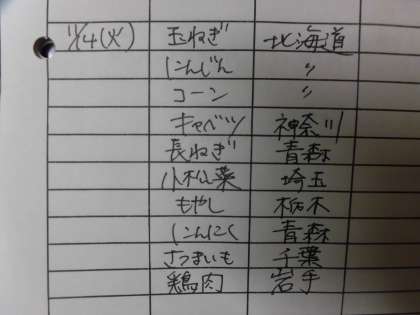 11/4(火) 玉ねぎ 北海道
にんじん 〃
コーン 〃
キャベツ 神奈川
長ねぎ 青森
小松菜 埼玉
もやし 栃木
にんにく 青森
さつまいも 千葉
鶏肉 岩手